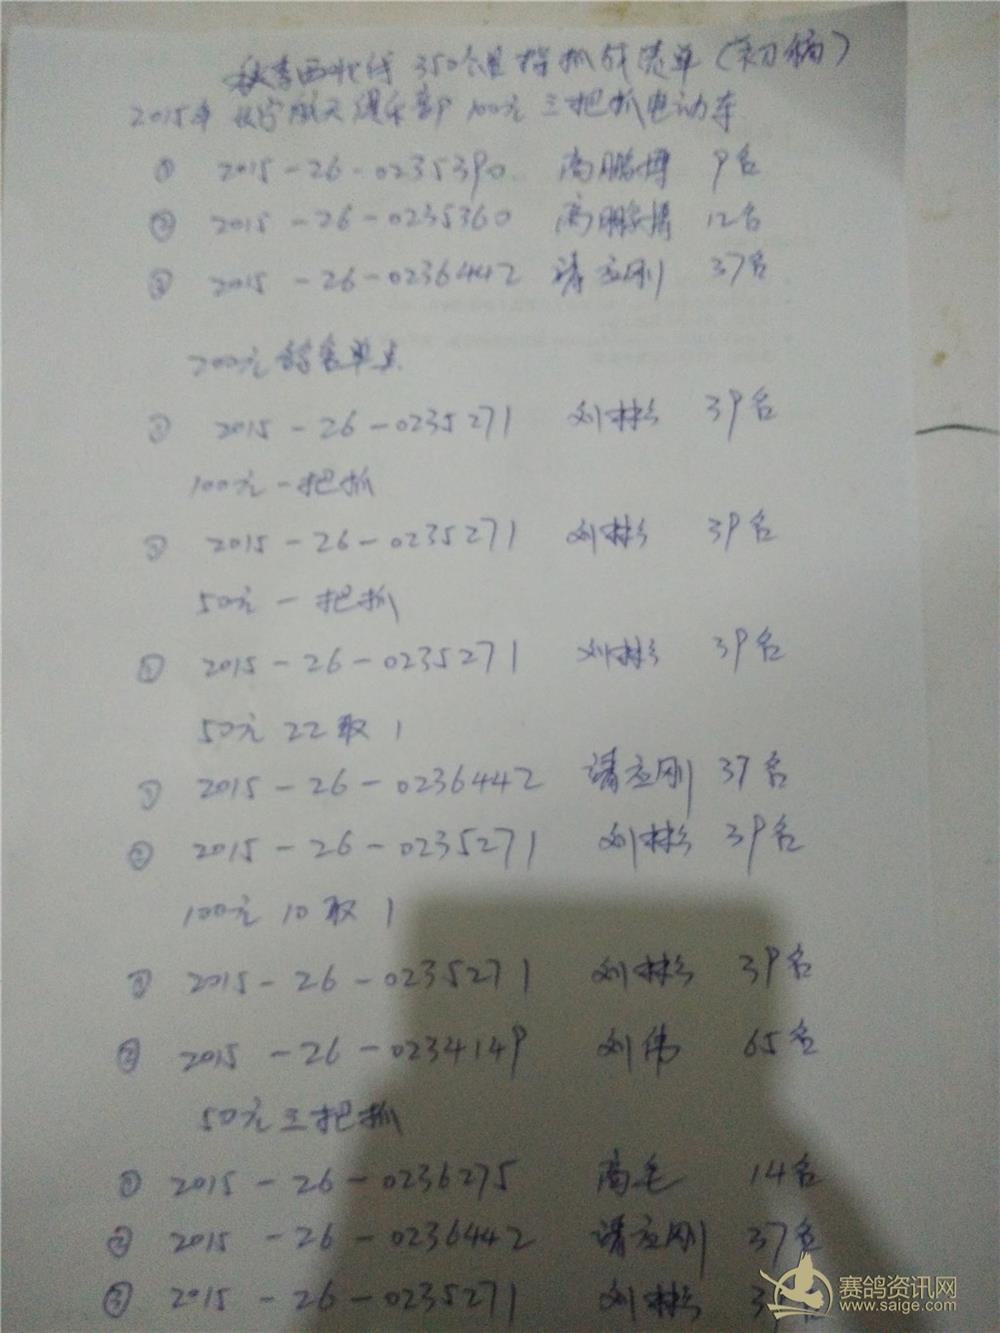 秋季西北线350公里指抓成绩单(初稿)
2015年长宇航天俱乐部100元三把抓电动车
① 2015-26-0235390 高鹏博 9名
② 2015-26-0235360 高鹏博 12名
③ 2015-26-0236442 请应刚 37名
200元 单
① 2015-26-0235271 刘彬 39名
100元一把抓
① 2015-26-0235271 刘彬 39名
50元一把抓
① 2015-26-0235271 刘彬 39名
50元 22取1
① 2015-26-0236442 请应刚 37名
② 2015-26-0235271 刘彬 39名
100元 10取1
① 2015-26-0235271 刘彬 39名
② 2015-26-0234149 刘伟 65名
50元三把抓
① 2015-26-0236275 高毛 14名
② 2015-26-0236442 请应刚 37名
③ 2015-26-0235271 刘彬 39
赛鸽资讯网
www.saige.com